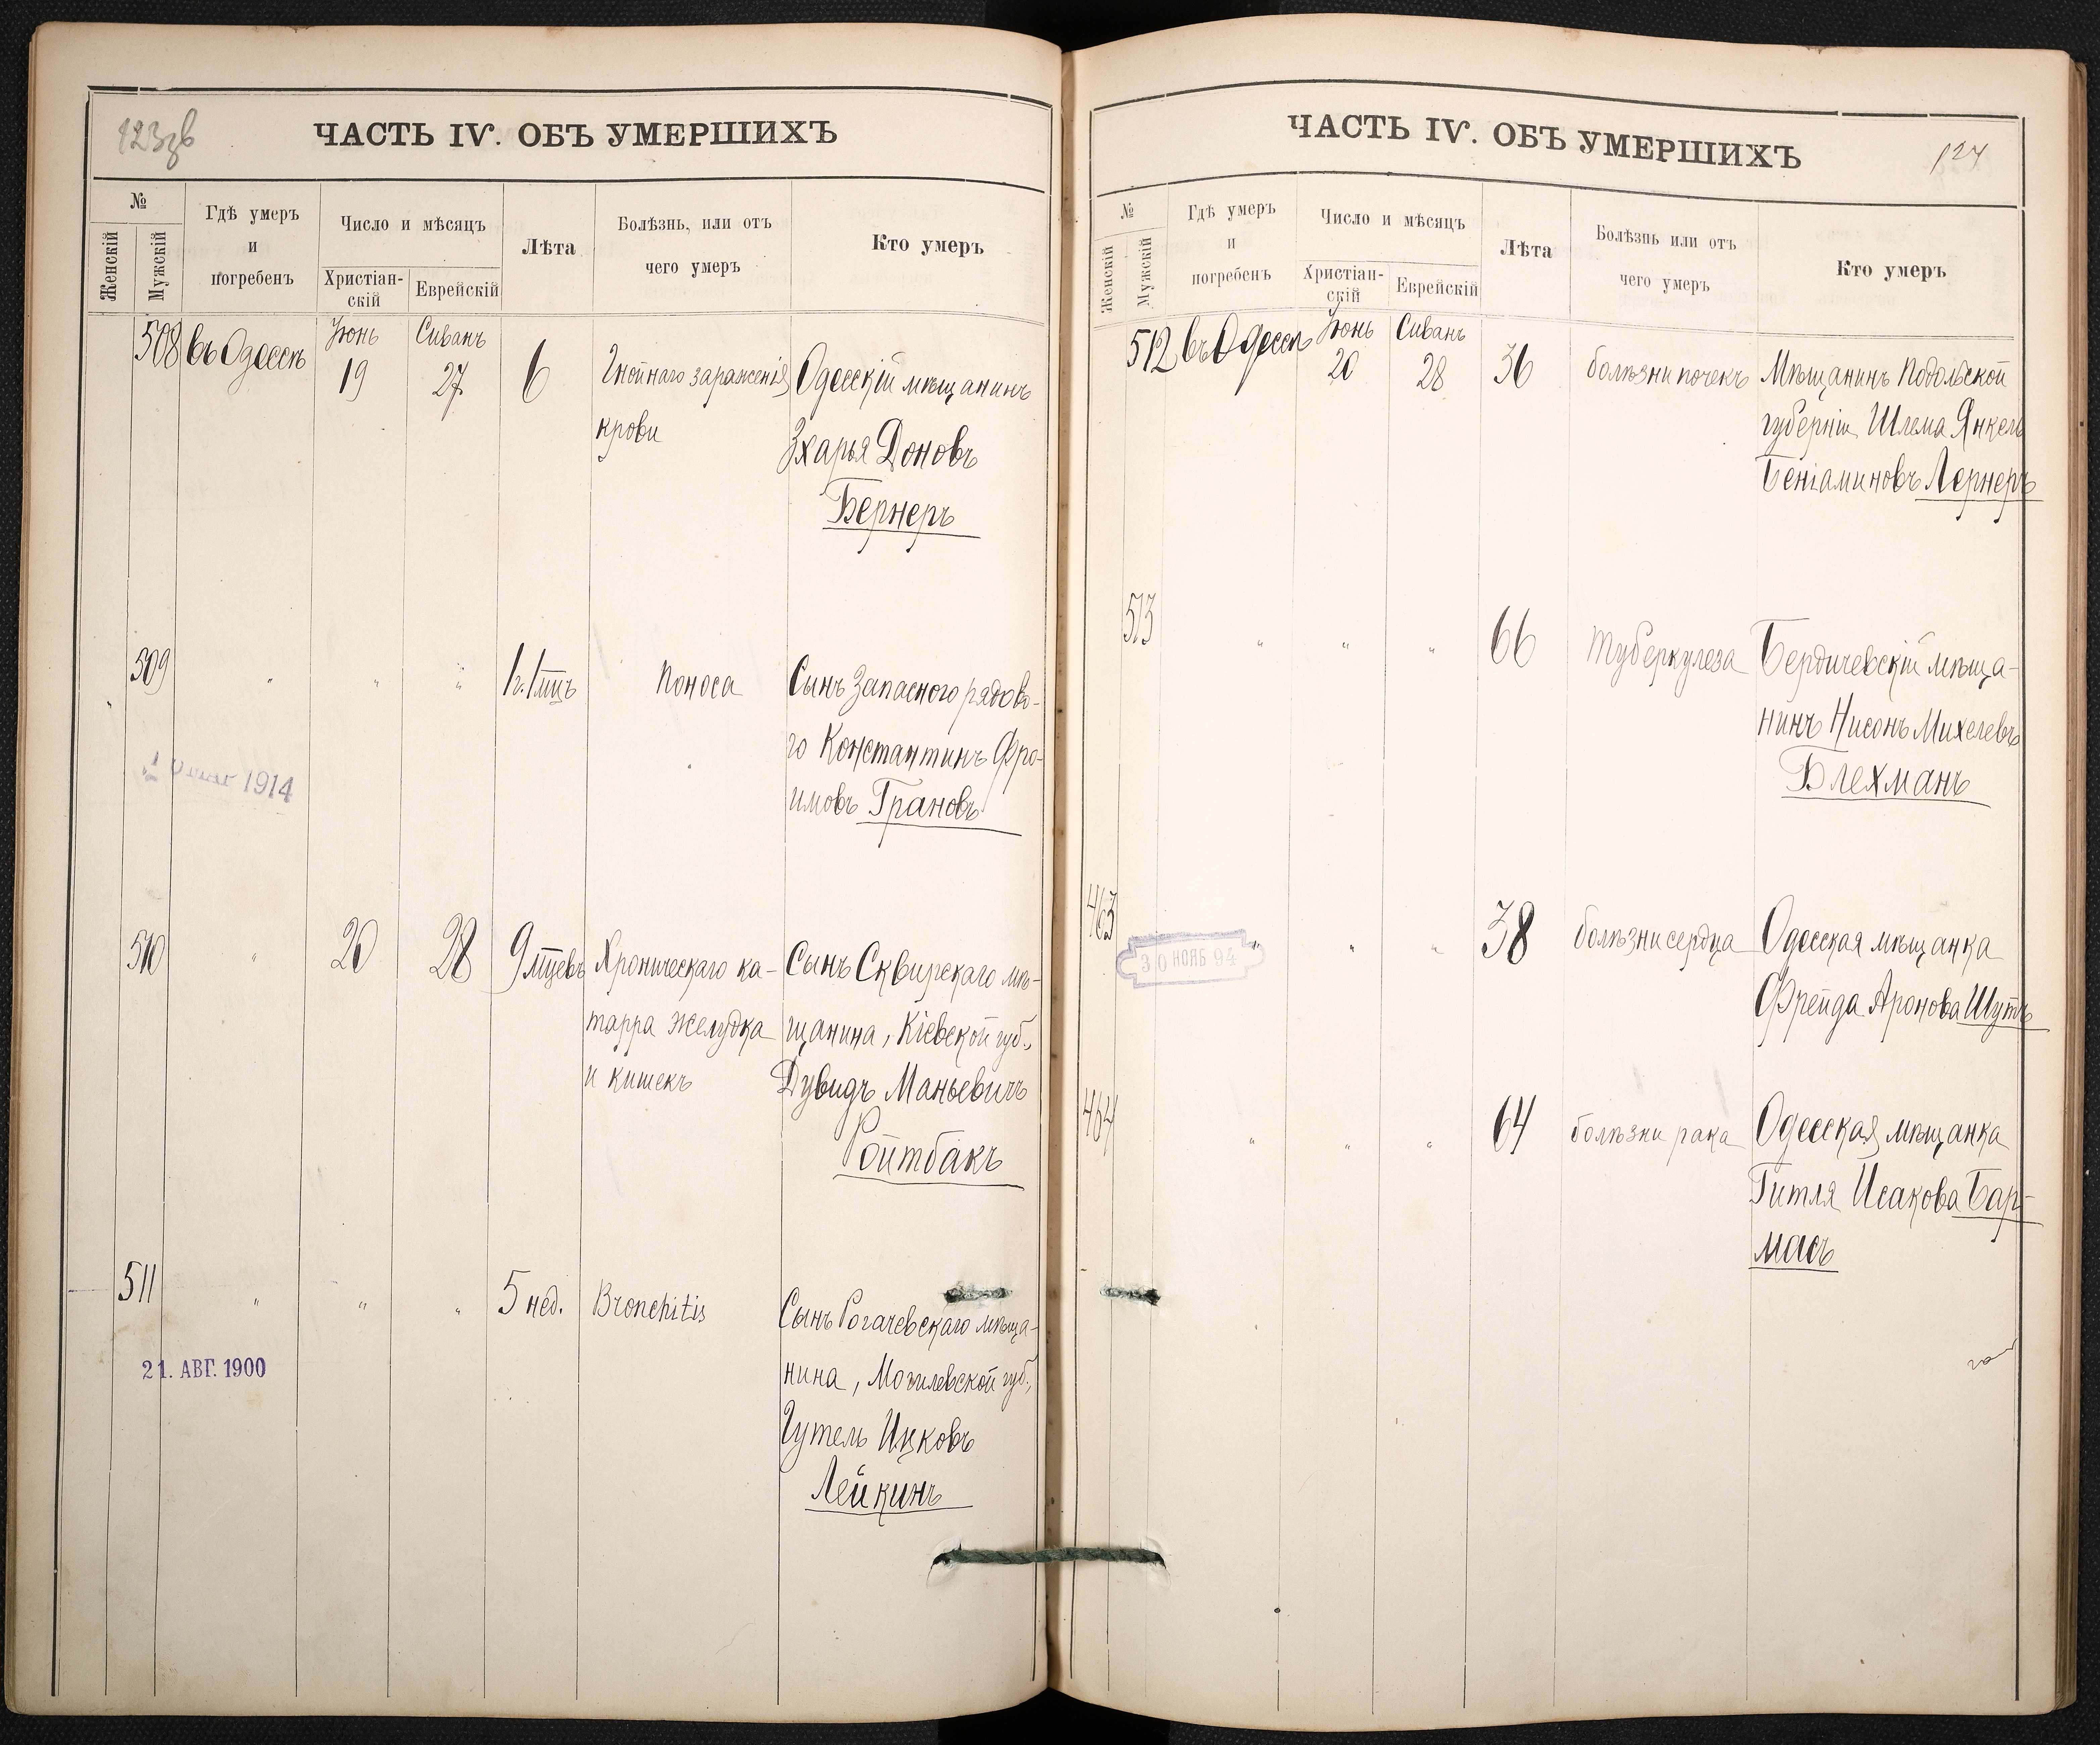 123зв
ЧАСТЬ IV. ОБЪ УМЕРШИХЪ
№
Женскій
Мужскій
Гдѣ умеръ
и
погребенъ
Число и мѣсяцъ
Христіан-
скій
Еврейскій
Лѣта
Болѣзнь, или отъ
чего умеръ
Кто умеръ
508 въ Одессѣ Іюнь 19 Сиванъ 27 6 Гнойнаго зараженія Одесскій мѣщанинъ
крови Зхарья Доновъ
Бернеръ
509 " " " 1 г. 1 мцъ Поноса Сынъ Запасного рядово-
го Константинъ Фро-
имовъ Грановъ
1914
510 " 20 28 9 мцевъ Хроническаго ка- Сынъ Сквирскаго мѣ-
тарра желудка щанина, Кіевской губ.,
и кишекъ Дувидъ Маньевичъ
Ройтбакъ
511 " " " 5 нед. Bronchitis Сынъ Рогачевскаго мѣща-
21. АВГ. 1900
нина, Могилевской губ.,
Гутель Ицковъ
Лейкинъ
ЧАСТЬ IV. ОБЪ УМЕРШИХЪ
124
№
Женскій
Мужскій
Гдѣ умеръ
и
погребенъ
Число и мѣсяцъ
Христіан-
скій
Еврейскій
Лѣта
Болѣзнь или отъ
чего умеръ
Кто умеръ
512 въ Одессѣ Іюнь 20 Сиванъ 28 36 болѣзни почекъ Мѣщанинъ Подольской
губерніи Шлема Янкель
Беніаминовъ Лернеръ
513 " " " 66 Туберкулеза Бердичевскій мѣща-
нинъ Нисонъ Михелевъ
Блехманъ
463 " " " 38 болѣзни сердца Одесская мѣщанка
30 НОЯБ 94
Фрейда Аронова Шутъ
464 " " " 64 болѣзни рака Одесская мѣщанка
Гитля Исакова Бар-
масъ